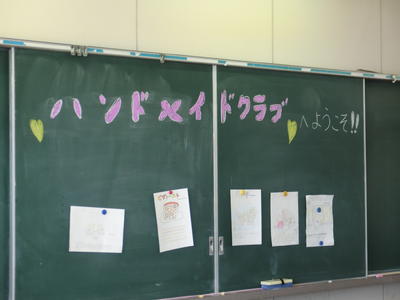 ハンドメイドクラブ
へようこそ!!